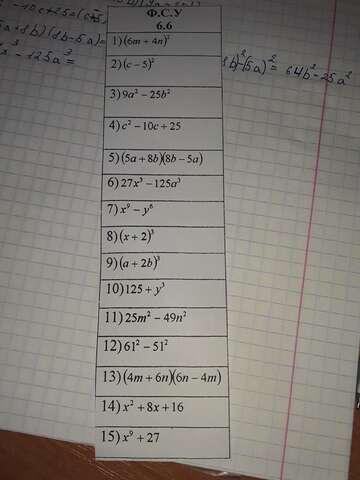 Ф.С.У
6.6
1) (6m + 4n)²
2) (c − 5)²
3) 9a² − 25b²
4) c² − 10c + 25
5) (5a + 8b)(8b − 5a)
6) 27x³ − 125a³
7) x⁹ − y⁶
8) (x + 2)³
9) (a + 2b)³
10) 125 + y³
11) 25m² − 49n²
12) 61² − 51²
13) (4m + 6n)(6n − 4m)
14) x² + 8x + 16
15) x⁹ + 27
b)²-(5a)² = 64b²-25a²
x³ - 125a³ =